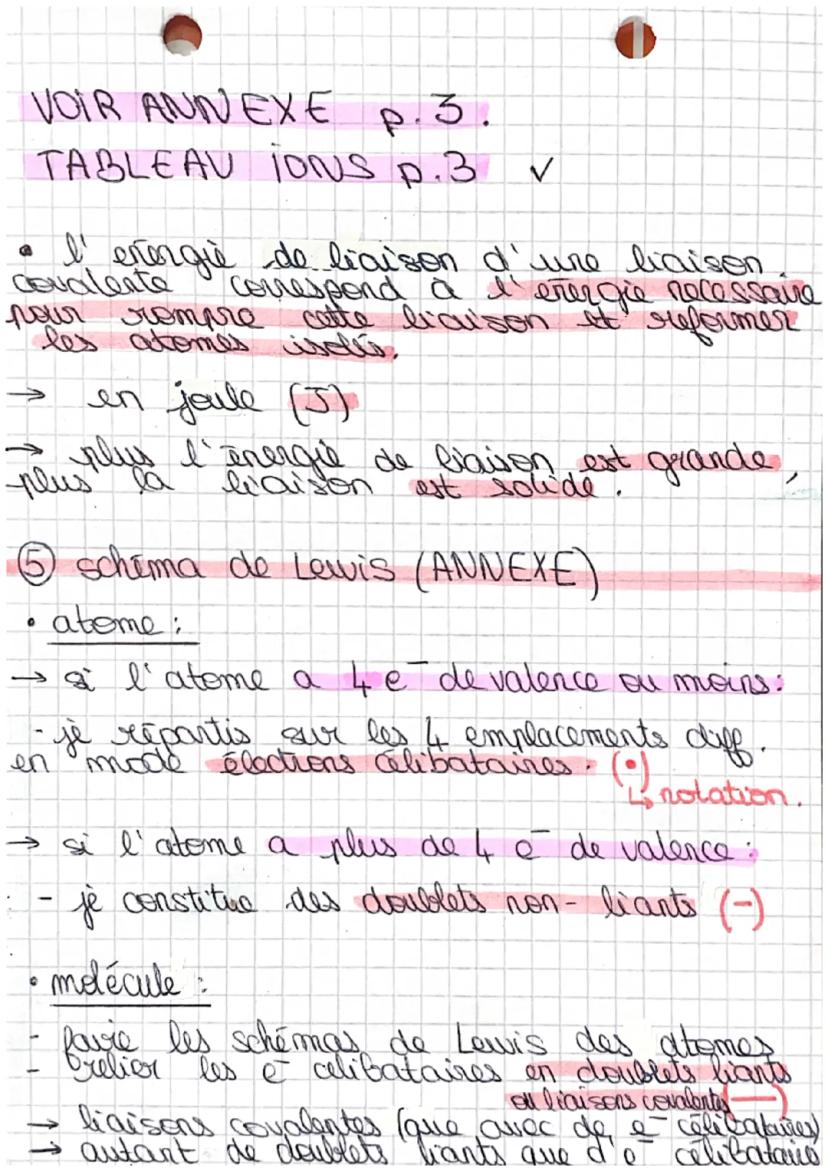 VOIR ANNEXE p.3.
TABLEAU IONS p.3 ✓
• l'énergie de liaison d'une liaison
covalente correspond à l'énergie necessaire
pour rompre cette liaison et reformer
les atomes isolés.
→ en joule (J)
→ plus l'énergie de liaison est grande,
plus la liaison est solide.
⑤ schéma de Lewis (ANNEXE)
• atome :
→ si l'atome a 4 e⁻ de valence ou moins:
- je répartis sur les 4 emplacements diff.
en mode électrons célibataires. (•)
↳ notation.
→ si l'atome a plus de 4 e⁻ de valence:
- je constitue des doublets non-liants (-)
• molécule :
- faire les schémas de Lewis des atomes
- relier les e⁻ célibataires en doublets liants
ou liaisons covalentes (—)
→ liaisons covalentes (que avec de e⁻ célibataires)
→ autant de doublets liants que d'e⁻ célibataires